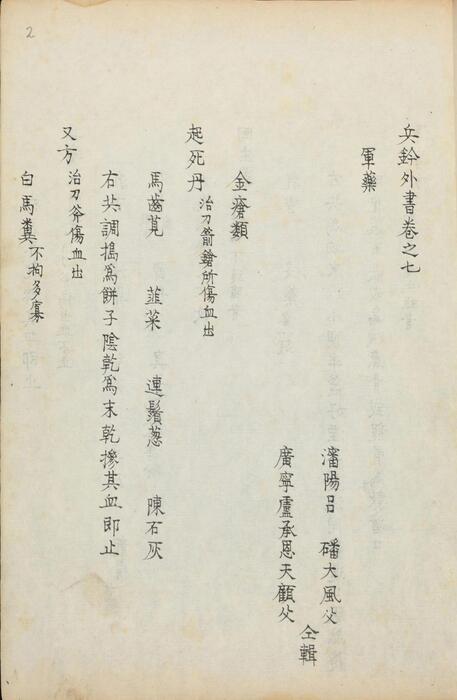 2
兵鈐外書卷之七
軍藥
瀋陽呂 磻大風父
廣寧盧承恩天顧父
仝輯
金瘡類
起死丹 治刀箭鎗所傷血出
馬齒莧 韮菜 連鬚葱 陳石灰
右共調搗爲餅子陰乾爲末乾摻其血即止
又方 治刀斧傷血出
白馬糞 不拘多寡